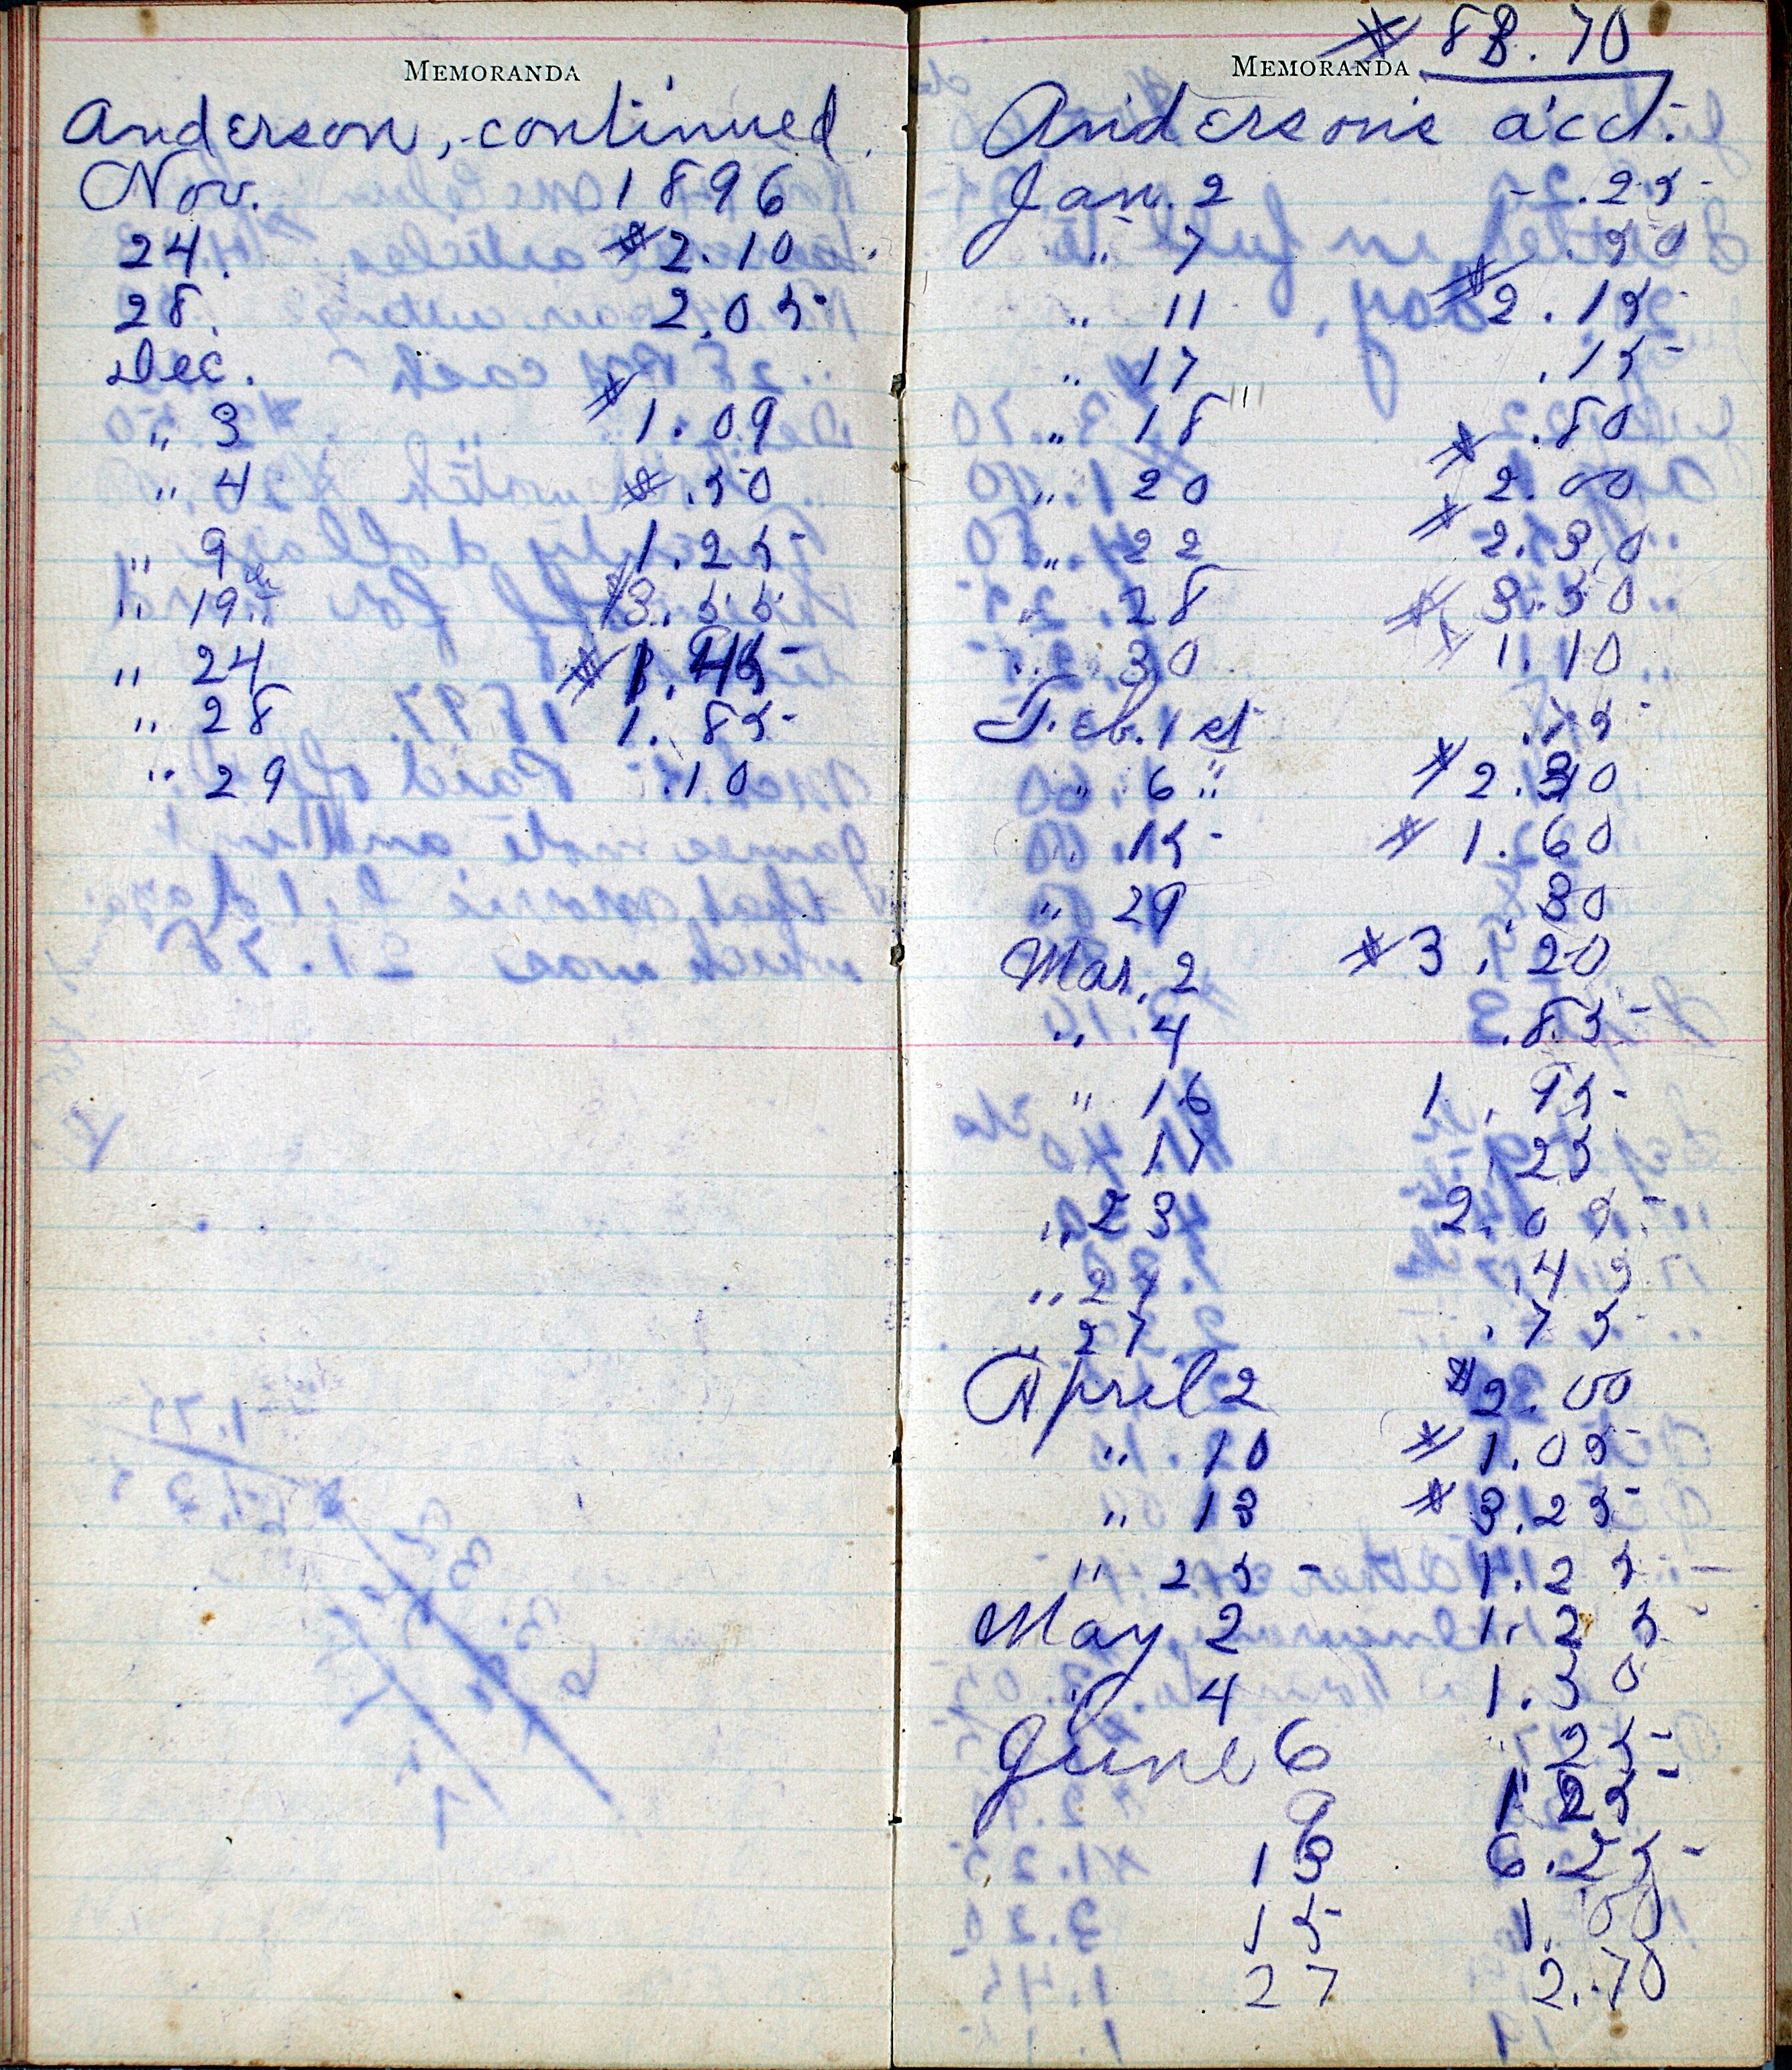 MEMORANDA
Anderson, continued.
Nov. 1896
24. $2.10
28. 2.05
Dec.
" 3 $1.09
" 4 $.50
" 9 1.25
" 19th $3.55
" 24 $1.45
" 28 1.85
" 29 .10
$ 58.70
MEMORANDA
Anderson's acct.
Jan. 2 .25
" 7 .50
" 11 $2.15
" 17 .15
" 18 .80
" 20 $2.00
" 22 $2.30
" 28 $3.50
" 30 $1.10
Feb. 1st .75
" 6 " $2.30
" 15 $1.60
" 29 .80
Mar. 2 $3.20
" 4 .85
" 16 1.95
17 .25
" 23 2.05
" 27 .45
" 27 .75
April 2 $2.00
" 10 $1.05
" 13 $3.25
" 25 1.25
May 2 1.25
" 4 1.50
June 6 .25
9 1 25
13 6.25
15 1.00
27 2.70